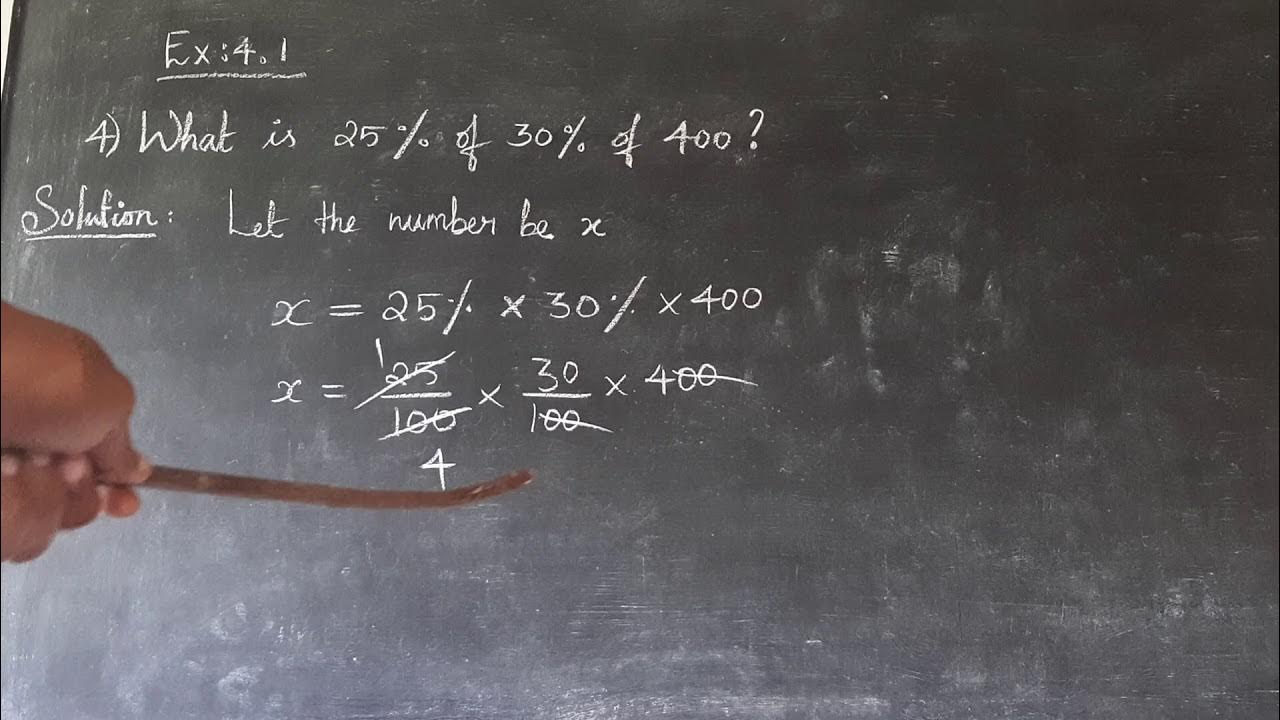 Ex:4.1
4) What is 25% of 30% of 400?
Solution: Let the number be x
x = 25% × 30% × 400
1
x = 25/100 × 30/100 × 400
4